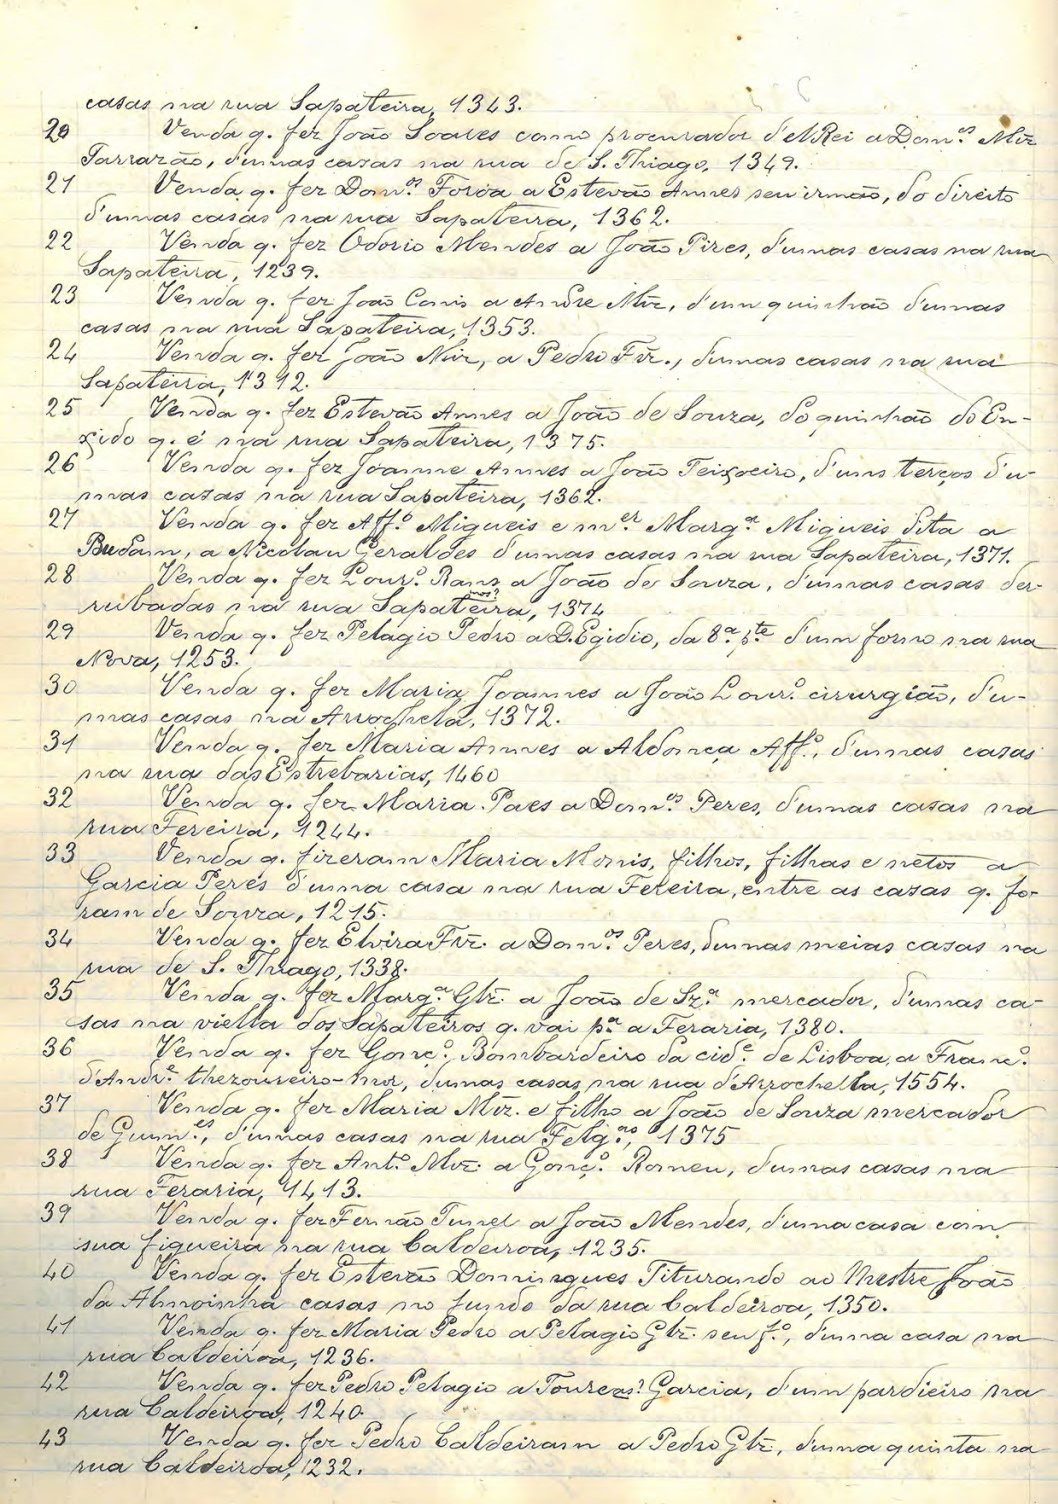 casas na rua Sapateira, 1343.
20 Venda q. fez João Soares como procurador d'ElRei a Dom.os Miz̃
Tarrazão, d'umas cazas na rua de S. Thiago, 1349.
21 Venda q. fez Dom.os Foroa a Estevão Annes seu irmão, do direito
d'umas casas na rua Sapateira, 1362.
22 Venda q. fez Odorio Mendes a João Pires, d'umas casas na rua
Sapateira, 1239.
23 Venda q. fez João Canis a Andre Miz̃, d'um quinhão d'umas
casas na rua Sapateira, 1353.
24 Venda q. fez João Miz, a Pedro Fiz̃., d'umas casas na rua
Sapateira, 1312.
25 Venda q. fez Estevão Annes a João de Souza, do quinhão do En-
xido q. é na rua Sapateira, 1375.
26 Venda q. fez Joanne Annes a João Teixoeiro, d'uns terços d'u-
mas casas na rua Sapateira, 1362.
27 Venda q. fez Aff.o Migueis e m.er Marg.a Migueis dita a
Budam, a Nicolau Geraldes d'umas casas na rua Sapateira, 1371.
28 Venda q. fez Lour.o Rans a João de Souza, d'umas casas der-
rubadas na rua Sapateira, 1374
29 Venda q. fez Pelagio Pedro a D. Egidio, da 8.a p.te d'um forno na rua
Nova, 1253.
30 Venda q. fez Maria Joannes a João Lour.o cirurgião, d'u-
mas casas na Arrochela, 1372.
31 Venda q. fez Maria Annes a Aldonça Aff.o, d'umas casas
na rua das Estrebarias, 1460
32 Venda q. fez Maria Paes a Dom.os Peres, d'umas casas na
rua Fereira, 1244.
33 Venda q. fizeram Maria Monis, filhos, filhas e netos a
Garcia Perés d'uma casa na rua Fereira, entre as cazas q. fo-
ram de Souza, 1215.
34 Venda q. fez Elvira Fiz̃. a Dom.os Peres, d'umas meias casas na
rua de S. Thiago, 1338.
35 Venda q. fez Marg.a Glz̃. a João de Sz.a mercador, d'umas ca-
sas na viella dos Sapateiros q. vai p.a a Feraria, 1380.
36 Venda q. fez Gonç.o Bombardeiro da cid.e de Lisboa, a Franc.o
d'Andr.e thezoureiro-mor, d'umas casas na rua d'Arrochella, 1554.
37 Venda q. fez Maria Miz̃. e filho a João de Souza mercador
de Guim.es, d'umas casas na rua Felg.as, 1375
38 Venda q. fez Ant.o Miz̃. a Gonç.o Romeu, d'umas casas na
rua Feraria, 1413.
39 Venda q. fez Fernão Tunel a João Mendes, d'uma casa com
sua figueira na rua Caldeiroa, 1235.
40 Venda q. fez Estevão Domingues Titurando ao Mestre João
da Almoinha casas no fundo da rua Caldeiroa, 1350.
41 Venda q. fez Maria Pedro a Pelagio Glz̃. seu f.o, d'uma casa na
rua Caldeiroa, 1236.
42 Venda q. fez Pedro Pelagio a Tourezs? Garcia, d'um pardieiro na
rua Caldeiroa, 1240.
43 Venda q. fez Pedro Caldeiram a Pedro Glz̃, d'uma quinta na
rua Caldeiroa, 1232.